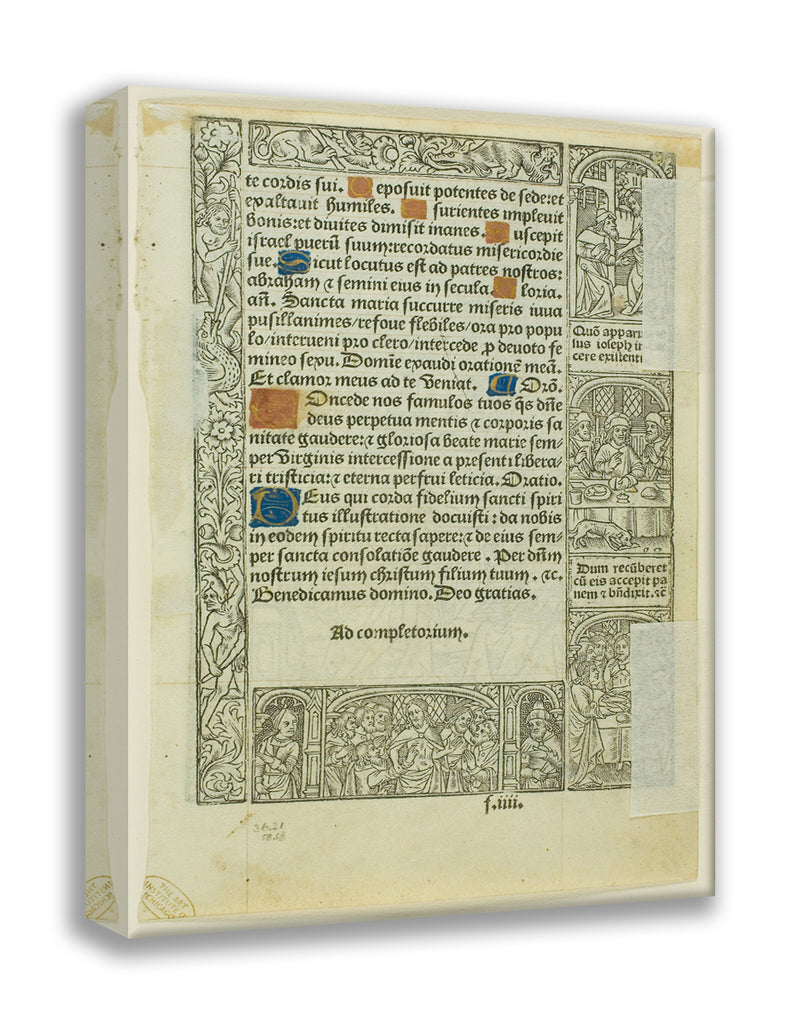 te cordis sui. Deposuit potentes de sede:et
exaltauit humiles. Esurientes impleuit
bonis:et diuites dimisit inanes. Suscepit
israel puerū suum:recordatus misericordie
sue. Sicut locutus est ad patres nostros:
abraham ⁊ semini eius in secula. Gloria.
añ. Sancta maria succurre miseris iuua
pusillanimes/refoue flebiles/ora pro popu
lo/interueni pro clero/intercede ꝓ deuoto fe
mineo sexu. Domīe exaudi orationē meā.
Et clamor meus ad te veniat. Orō.
Concede nos famulos tuos q̄s dn̄e
deus perpetua mentis ⁊ corporis sa
nitate gaudere:⁊ gloriosa beate marie sem-
per virginis intercessione a presenti libera-
ri tristicia:⁊ eterna perfrui leticia. Oratio.
Deus qui corda fidelium sancti spiri
tus illustratione docuisti:da nobis
in eodem spiritu recta sapere:⁊ de eius sem-
per sancta consolatiōe gaudere. Per dn̄m
nostrum iesum christum filium tuum. ⁊c.
Benedicamus domino. Deo gratias.
Ad completorium.
Quō appar
ius ioseph i
cere existenti
Dum recūberet
cū eis accepit pa
nem ⁊ bn̄dixit.⁊c̄
f.iiii.
36.21
58.58
THE ART
INSTITUTE O
CHICAGO